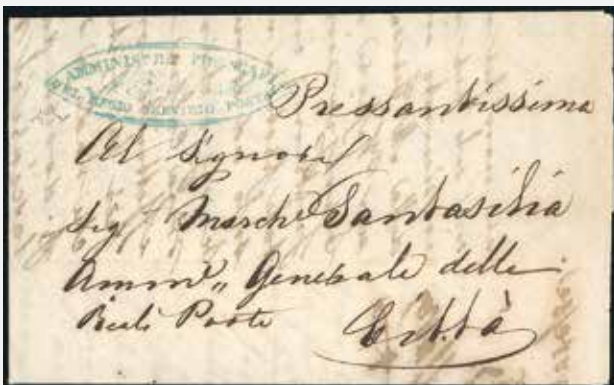 AMMINIST
DEL REGIO SERVIZIO POST
Pressantissima
Al Signore
Sig Marche Santasilia
Amm.e,, Generale delle
Reali Poste
Città